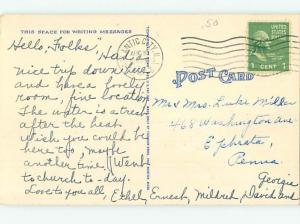 .50
THIS SPACE FOR WRITING MESSAGES
ANTIC CITY, N.J.
1 CENT 1
Hello, Folks, Had a
nice trip down here
and have a lovely
room, fine location.
The water is a treat
after the heat.
Wish you could be
here too, maybe
another time. Went
to church to-day.
Love to you all, Ethel, Ernest, Mildred, David and
Georgia
POST CARD
Mr & Mrs. Luke Miller
468 Washington Ave
Ephrata,
Penna.